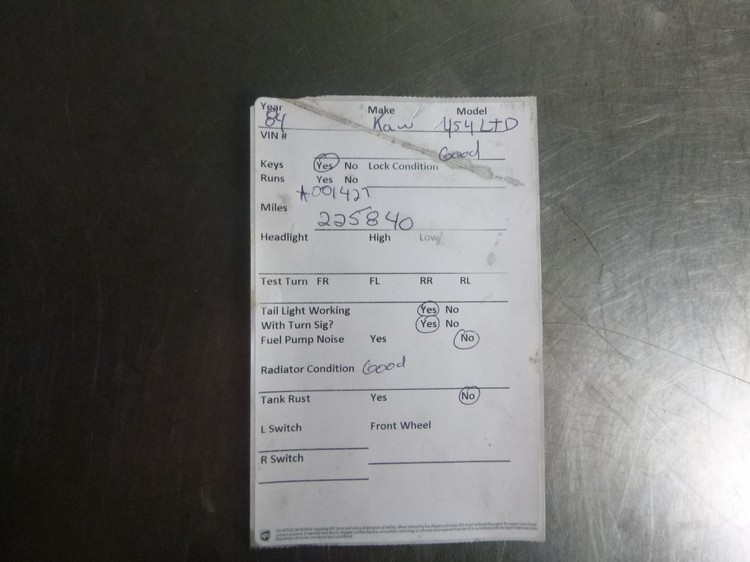 Year Make Model
84 Kaw 454 LTD
VIN #
Good
Keys Yes No Lock Condition
Runs Yes No
A001427
Miles 225840
Headlight High Low
Test Turn FR FL RR RL
Tail Light Working Yes No
With Turn Sig? Yes No
Fuel Pump Noise Yes No
Radiator Condition Good
Tank Rust Yes No
L Switch Front Wheel
R Switch